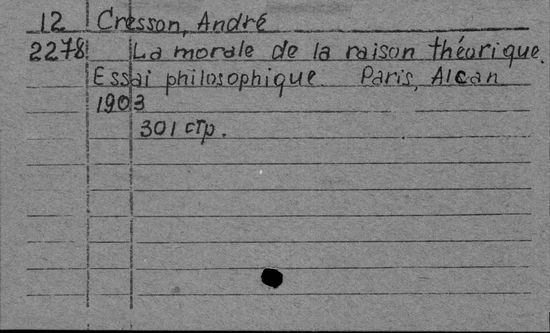 12 Cresson, André
2278 La morale de la raison théorique.
Essai philosophique. Paris, Alcan
1903
301 стр.